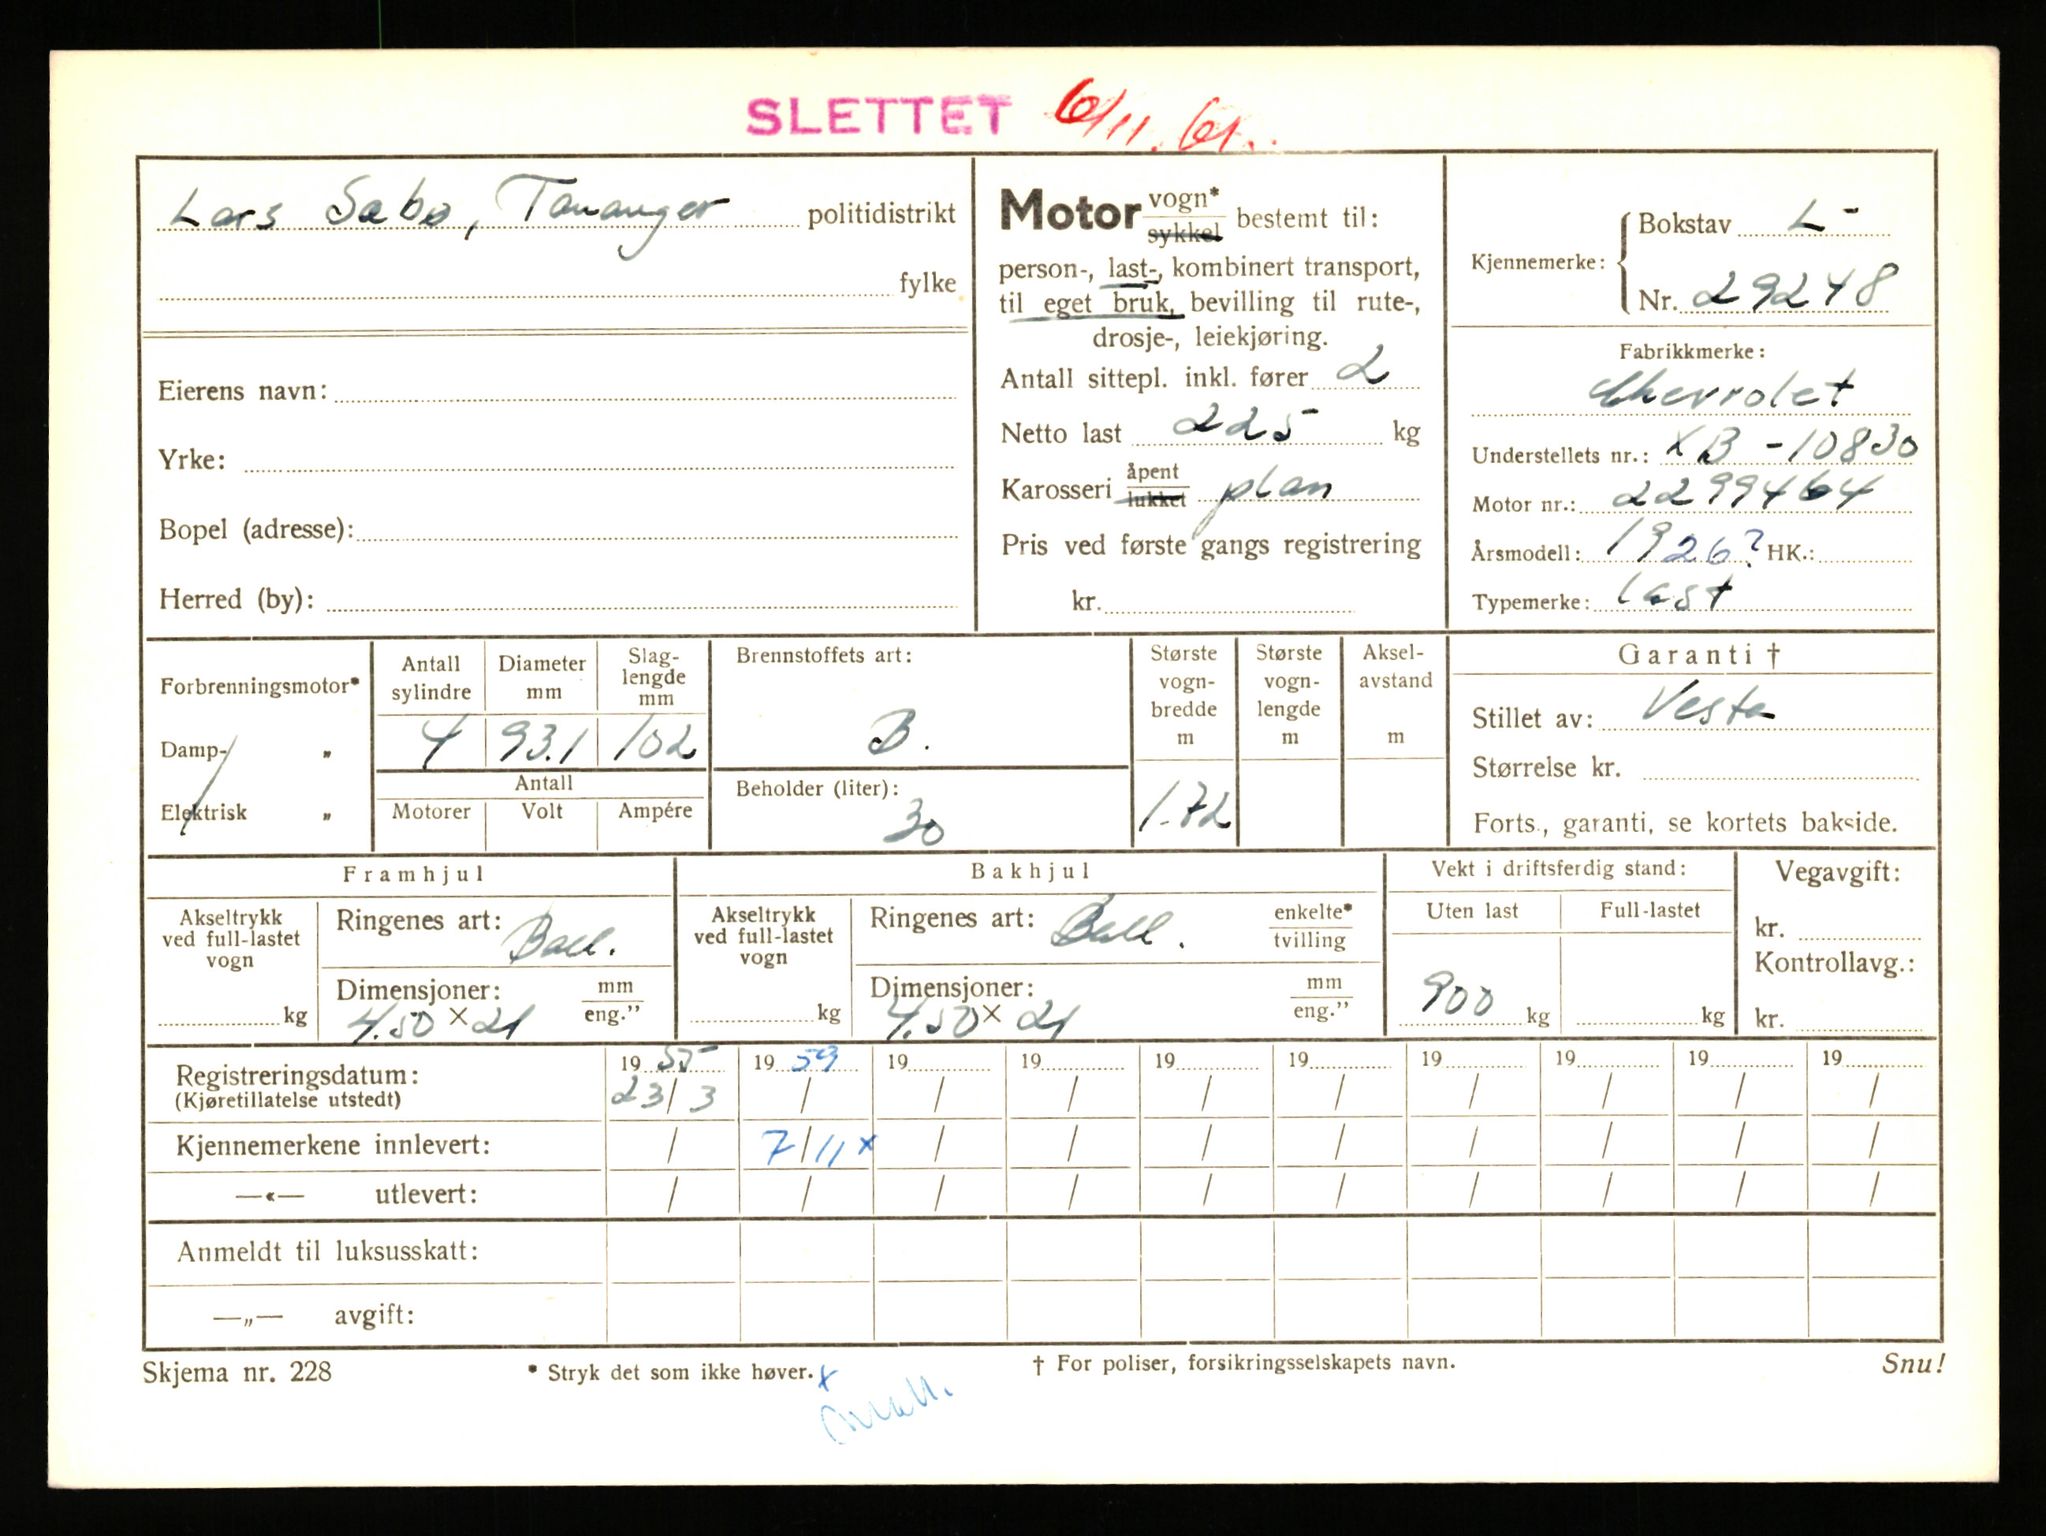 SLETTET 6/11.61.
Lars Sæbø, Tananger politidistrikt
fylke
Eierens navn:
Yrke:
Bopel (adresse):
Herred (by):
Motor vogn* / sykkel bestemt til:
person-, last-, kombinert transport,
til eget bruk, bevilling til rute-,
drosje-, leiekjøring.
Antall sittepl. inkl. fører 2
Netto last 225 kg
Karosseri åpent / lukket plan
Pris ved første gangs registrering
kr.
Kjennemerke: Bokstav L-
Nr. 29248
Fabrikkmerke:
Chevrolet
Understellets nr.: XB-10830
Motor nr.: 2299464
Årsmodell: 1926? HK.:
Typemerke: last
Forbrenningsmotor*
Damp- „
Elektrisk „
Antall sylindre 4
Diameter mm 93.1
Slaglengde mm 102
Antall
Motorer Volt Ampére
Brennstoffets art:
B.
Beholder (liter):
30
Største vognbredde m 1.72
Største vognlengde m
Akselavstand m
Garanti †
Stillet av: Vesta
Størrelse kr.
Forts., garanti, se kortets bakside.
Framhjul
Akseltrykk ved full-lastet vogn
kg
Ringenes art: Ball.
Dimensjoner: mm / eng."
4.50 x 21
Bakhjul
Akseltrykk ved full-lastet vogn
kg
Ringenes art: Ball. enkelte* / tvilling
Dimensjoner: mm / eng."
4.50 x 21
Vekt i driftsferdig stand:
Uten last Full-lastet
900 kg kg
Vegavgift:
kr.
Kontrollavg.:
kr.
19 55 19 59 19 19 19 19 19 19 19 19
Registreringsdatum: 23/3 / / / / / / / / /
(Kjøretillatelse utstedt)
Kjennemerkene innlevert: / 7/11 x / / / / / / / /
—«— utlevert: / / / / / / / / / /
Anmeldt til luksusskatt:
—„— avgift:
Skjema nr. 228 * Stryk det som ikke høver. † For poliser, forsikringsselskapets navn. Snu!
x